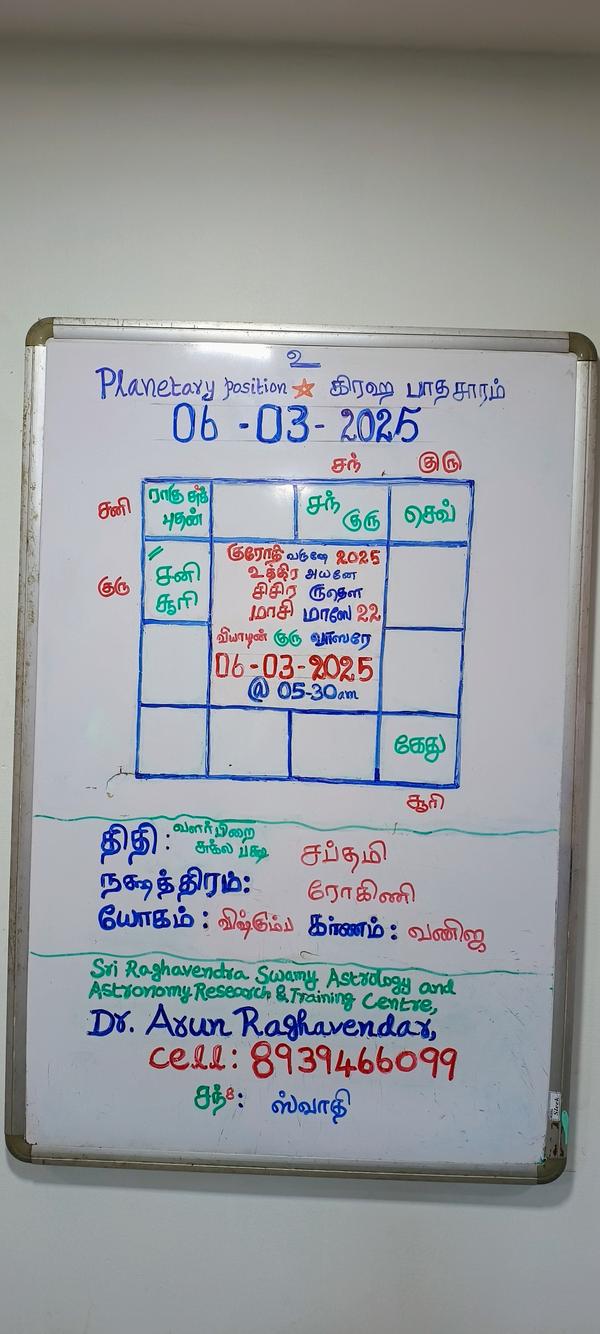 உ
Planetary position கிரஹ பாதசாரம்
06-03-2025
சந் குரு
சனி
ராகு சுக்
புதன்
சந் குரு
செவ்
குரு
சனி
சூரி
குரோதி வருஷே 2025
உத்திர அயனே
சிசிர ருதௌ
மாசி மாஸே 22
வியாழன் குரு வாஸரே
06-03-2025
@ 05-30am
கேது
சூரி
திதி: வளர்பிறை
சுக்ல பக்ஷ சப்தமி
நக்ஷத்திரம்: ரோகிணி
யோகம்: விஷ்கும்ப கர்ணம்: வணிஜ
Sri Raghavendra Swamy Astrology and
Astronomy Research & Training Centre,
Dr. Arun Raghavendar,
cell: 8939466099
சந்8: ஸ்வாதி